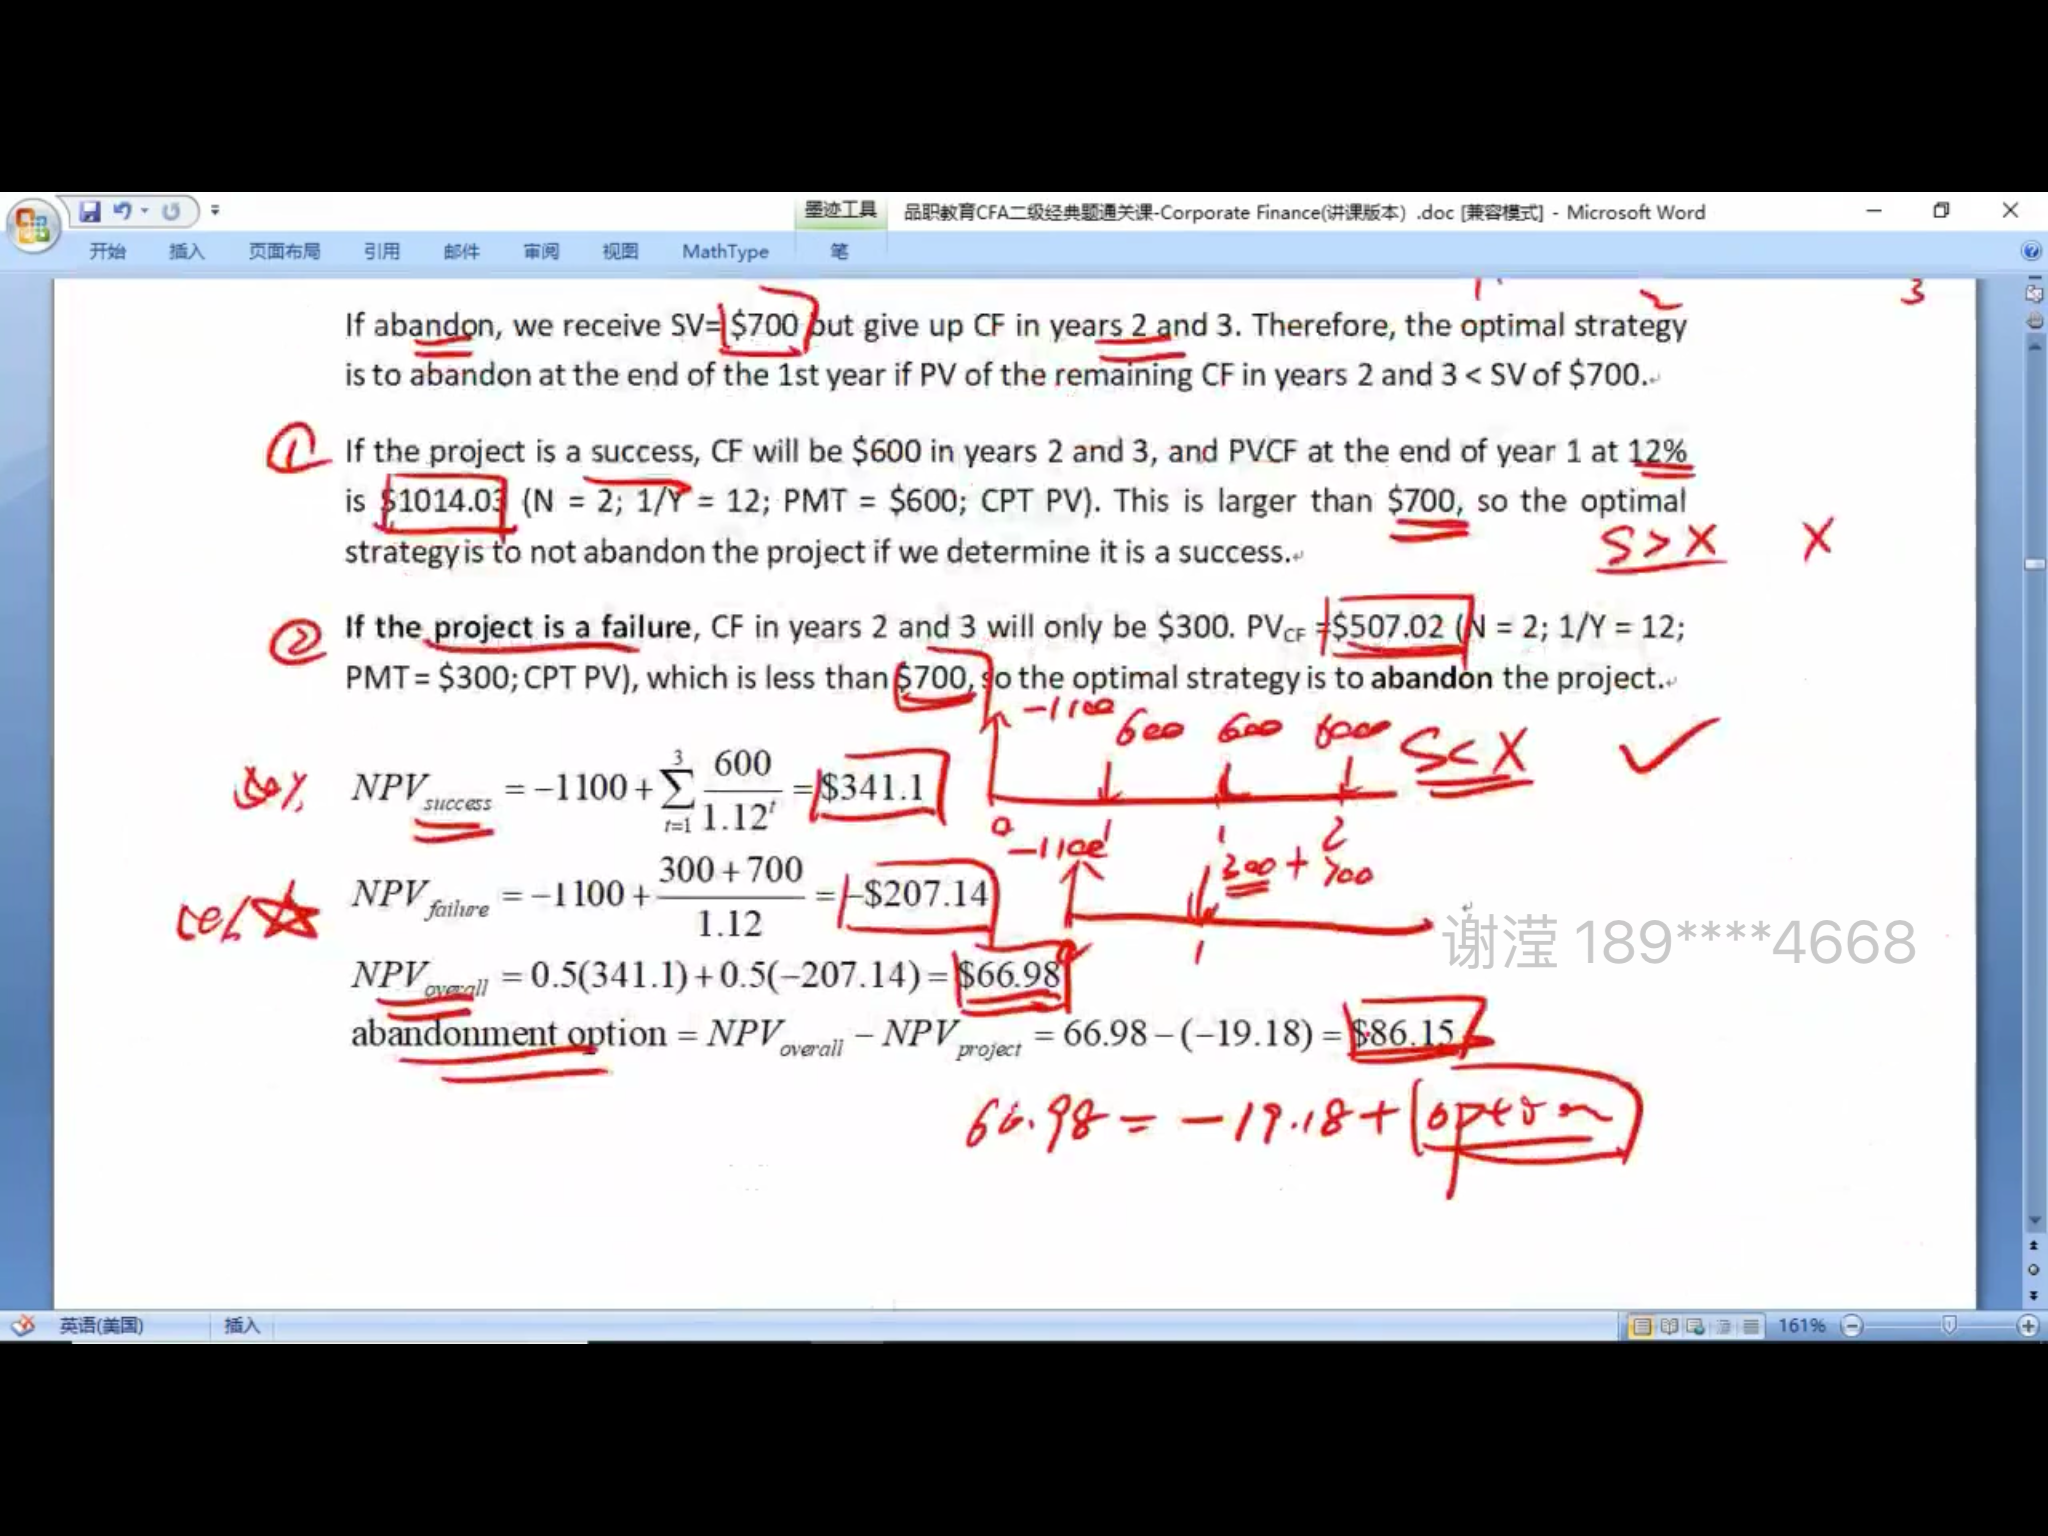 墨迹工具
品职教育CFA二级经典题通关课-Corporate Finance(讲课版本) .doc [兼容模式] - Microsoft Word
开始 插入 页面布局 引用 邮件 审阅 视图 MathType 笔
2 3
If abandon, we receive SV= $700 but give up CF in years 2 and 3. Therefore, the optimal strategy
is to abandon at the end of the 1st year if PV of the remaining CF in years 2 and 3 < SV of $700.
① If the project is a success, CF will be $600 in years 2 and 3, and PVCF at the end of year 1 at 12%
is $1014.03 (N = 2; 1/Y = 12; PMT = $600; CPT PV). This is larger than $700, so the optimal
S > X X
strategy is to not abandon the project if we determine it is a success.
② If the project is a failure, CF in years 2 and 3 will only be $300. PVCF =$507.02 (N = 2; 1/Y = 12;
PMT = $300; CPT PV), which is less than $700, so the optimal strategy is to abandon the project.
-1100 600 600 600 S< X
NPVsuccess = −1100 + ∑ t=1 3 600 / 1.12^t = $341.1
0 1 1 2
-1100 300 + 700
NPVfailure = −1100 + 300 + 700 / 1.12 = −$207.14
1
谢滢 189****4668
NPVoverall = 0.5(341.1) + 0.5(−207.14) = $66.98
abandonment option = NPVoverall − NPVproject = 66.98 − (−19.18) = $86.15
66.98 = -19.18 + option
英语(美国) 插入 161%